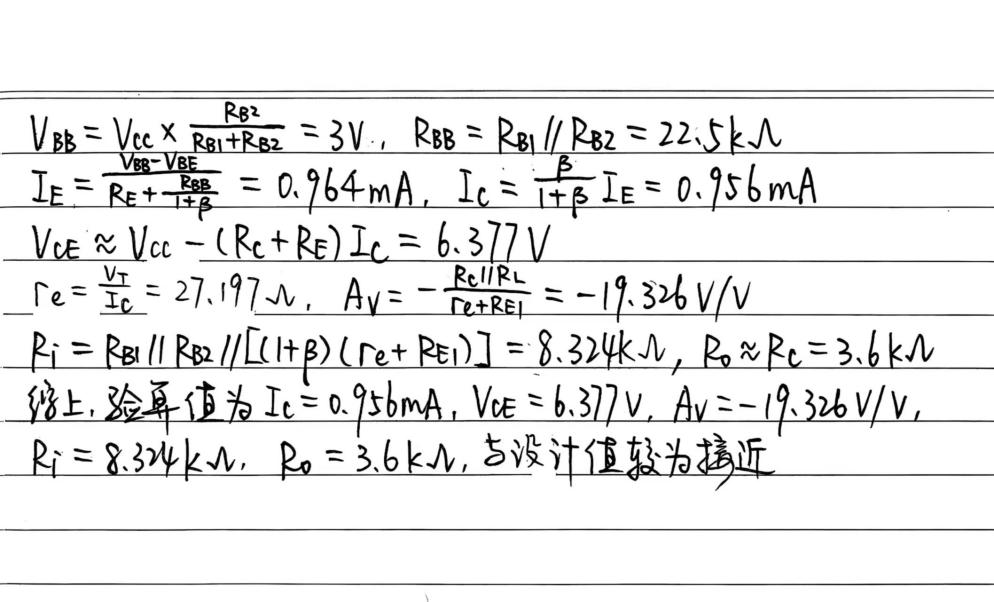 V_BB = V_CC × R_B2/(R_B1+R_B2) = 3V, R_BB = R_B1 // R_B2 = 22.5kΩ
I_E = (V_BB-V_BE)/(R_E + R_BB/(1+β)) = 0.964mA, I_C = β/(1+β) I_E = 0.956mA
V_CE ≈ V_CC - (R_C+R_E) I_C = 6.377V
r_e = V_T/I_C = 27.197Ω, A_V = - (R_C//R_L)/(r_e+R_E1) = -19.326 V/V
R_i = R_B1 // R_B2 // [(1+β)(r_e+R_E1)] = 8.324kΩ, R_o ≈ R_C = 3.6kΩ
综上,验算值为 I_C = 0.956mA, V_CE = 6.377V, A_V = -19.326 V/V,
R_i = 8.324kΩ, R_o = 3.6kΩ, 与设计值较为接近